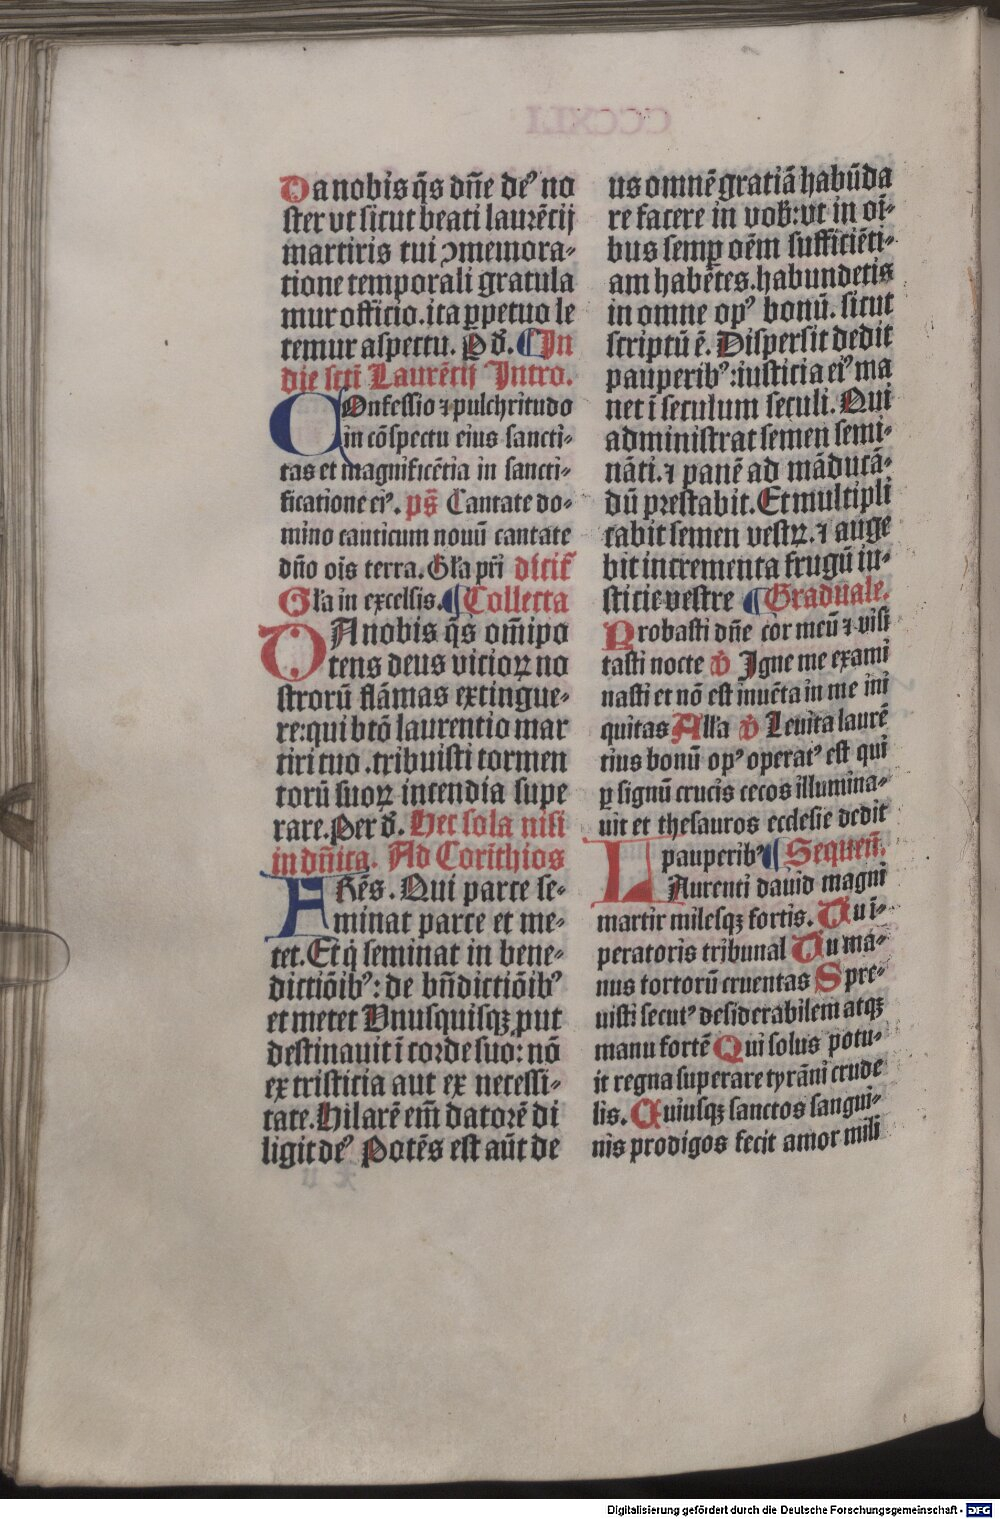 Da nobis q̄s dn̄e deꝰ no
ster vt sicut beati laurētij
martiris tui ↄmemora-
tione temporali gratula
mur officio.ita ꝑpetuo le
temur aspectu. P d̄. ¶In
die scti Laurētij Intro.
COnfessio ⁊ pulchritudo
in cōspectu eius sancti-
tas et magnificētia in sancti-
ficatione eiꝰ. ps̄ Cantate do-
mino canticum nouū cantate
dn̄o ois terra. Gl'a pr̄i dicit̄
Gl'a in excelsis. ¶Collecta
DA nobis q̄s om̄ipo
tens deus vicioꝝ no
strorū flāmas extingue-
re:qui btō laurentio mar
tiri tuo .tribuisti tormen
torū suoꝝ incendia supe
rare. Per d̄. Hec sola nisi
in dn̄ica. Ad Corīthios
FRēs. Qui parce se-
minat parce et me-
tet. Et q̇ seminat in bene-
dictiōibꝰ: de bn̄dictiōibꝰ
et metet Vnusquisqꝫ put
destinauit ī corde suo: nō
ex tristicia aut ex necessi-
tate. Hilarē em̄ datorē di
ligit deꝰ Potēs est aūt de
us omnē gratiā habūda
re facere in vob̄: vt in oī-
bus semꝑ oēm sufficiēti-
am habētes.habundetis
in omne opꝰ bonū. sicut
scriptū ē. Dispersit dedit
pauperibꝰ:iusticia eiꝰ ma
net ī seculum seculi. Qui
administrat semen semi-
nāti.⁊ panē ad māducā-
dū prestabit. Et multipli
cabit semen vestꝝ.⁊ auge
bit incrementa frugū iu-
sticie vestre ¶Graduale.
Probasti dn̄e cor meū ⁊ visi
tasti nocte ℣ Igne me exami
nasti et nō est inuēta in me ini
quitas Alla ℣ Leuita laurē
tius bonū opꝰ operatꝰ est qui
ꝑ signū crucis cecos illumina-
uit et thesauros ecclesie dedit
pauperibꝰ ¶Sequen̄.
LAurenti dauid magni
martir milesqꝫ fortis. Tu ī-
peratoris tribunal Tu ma-
nus tortorū cruentas Spre-
uisti secutꝰ desiderabilem atqꝫ
manu fortē Qui solus potu-
it regna superare tyrāni crude
lis. Cuiusqꝫ sanctos sangui-
nis prodigos fecit amor mili
Digitalisierung gefördert durch die Deutsche Forschungsgemeinschaft - DFG